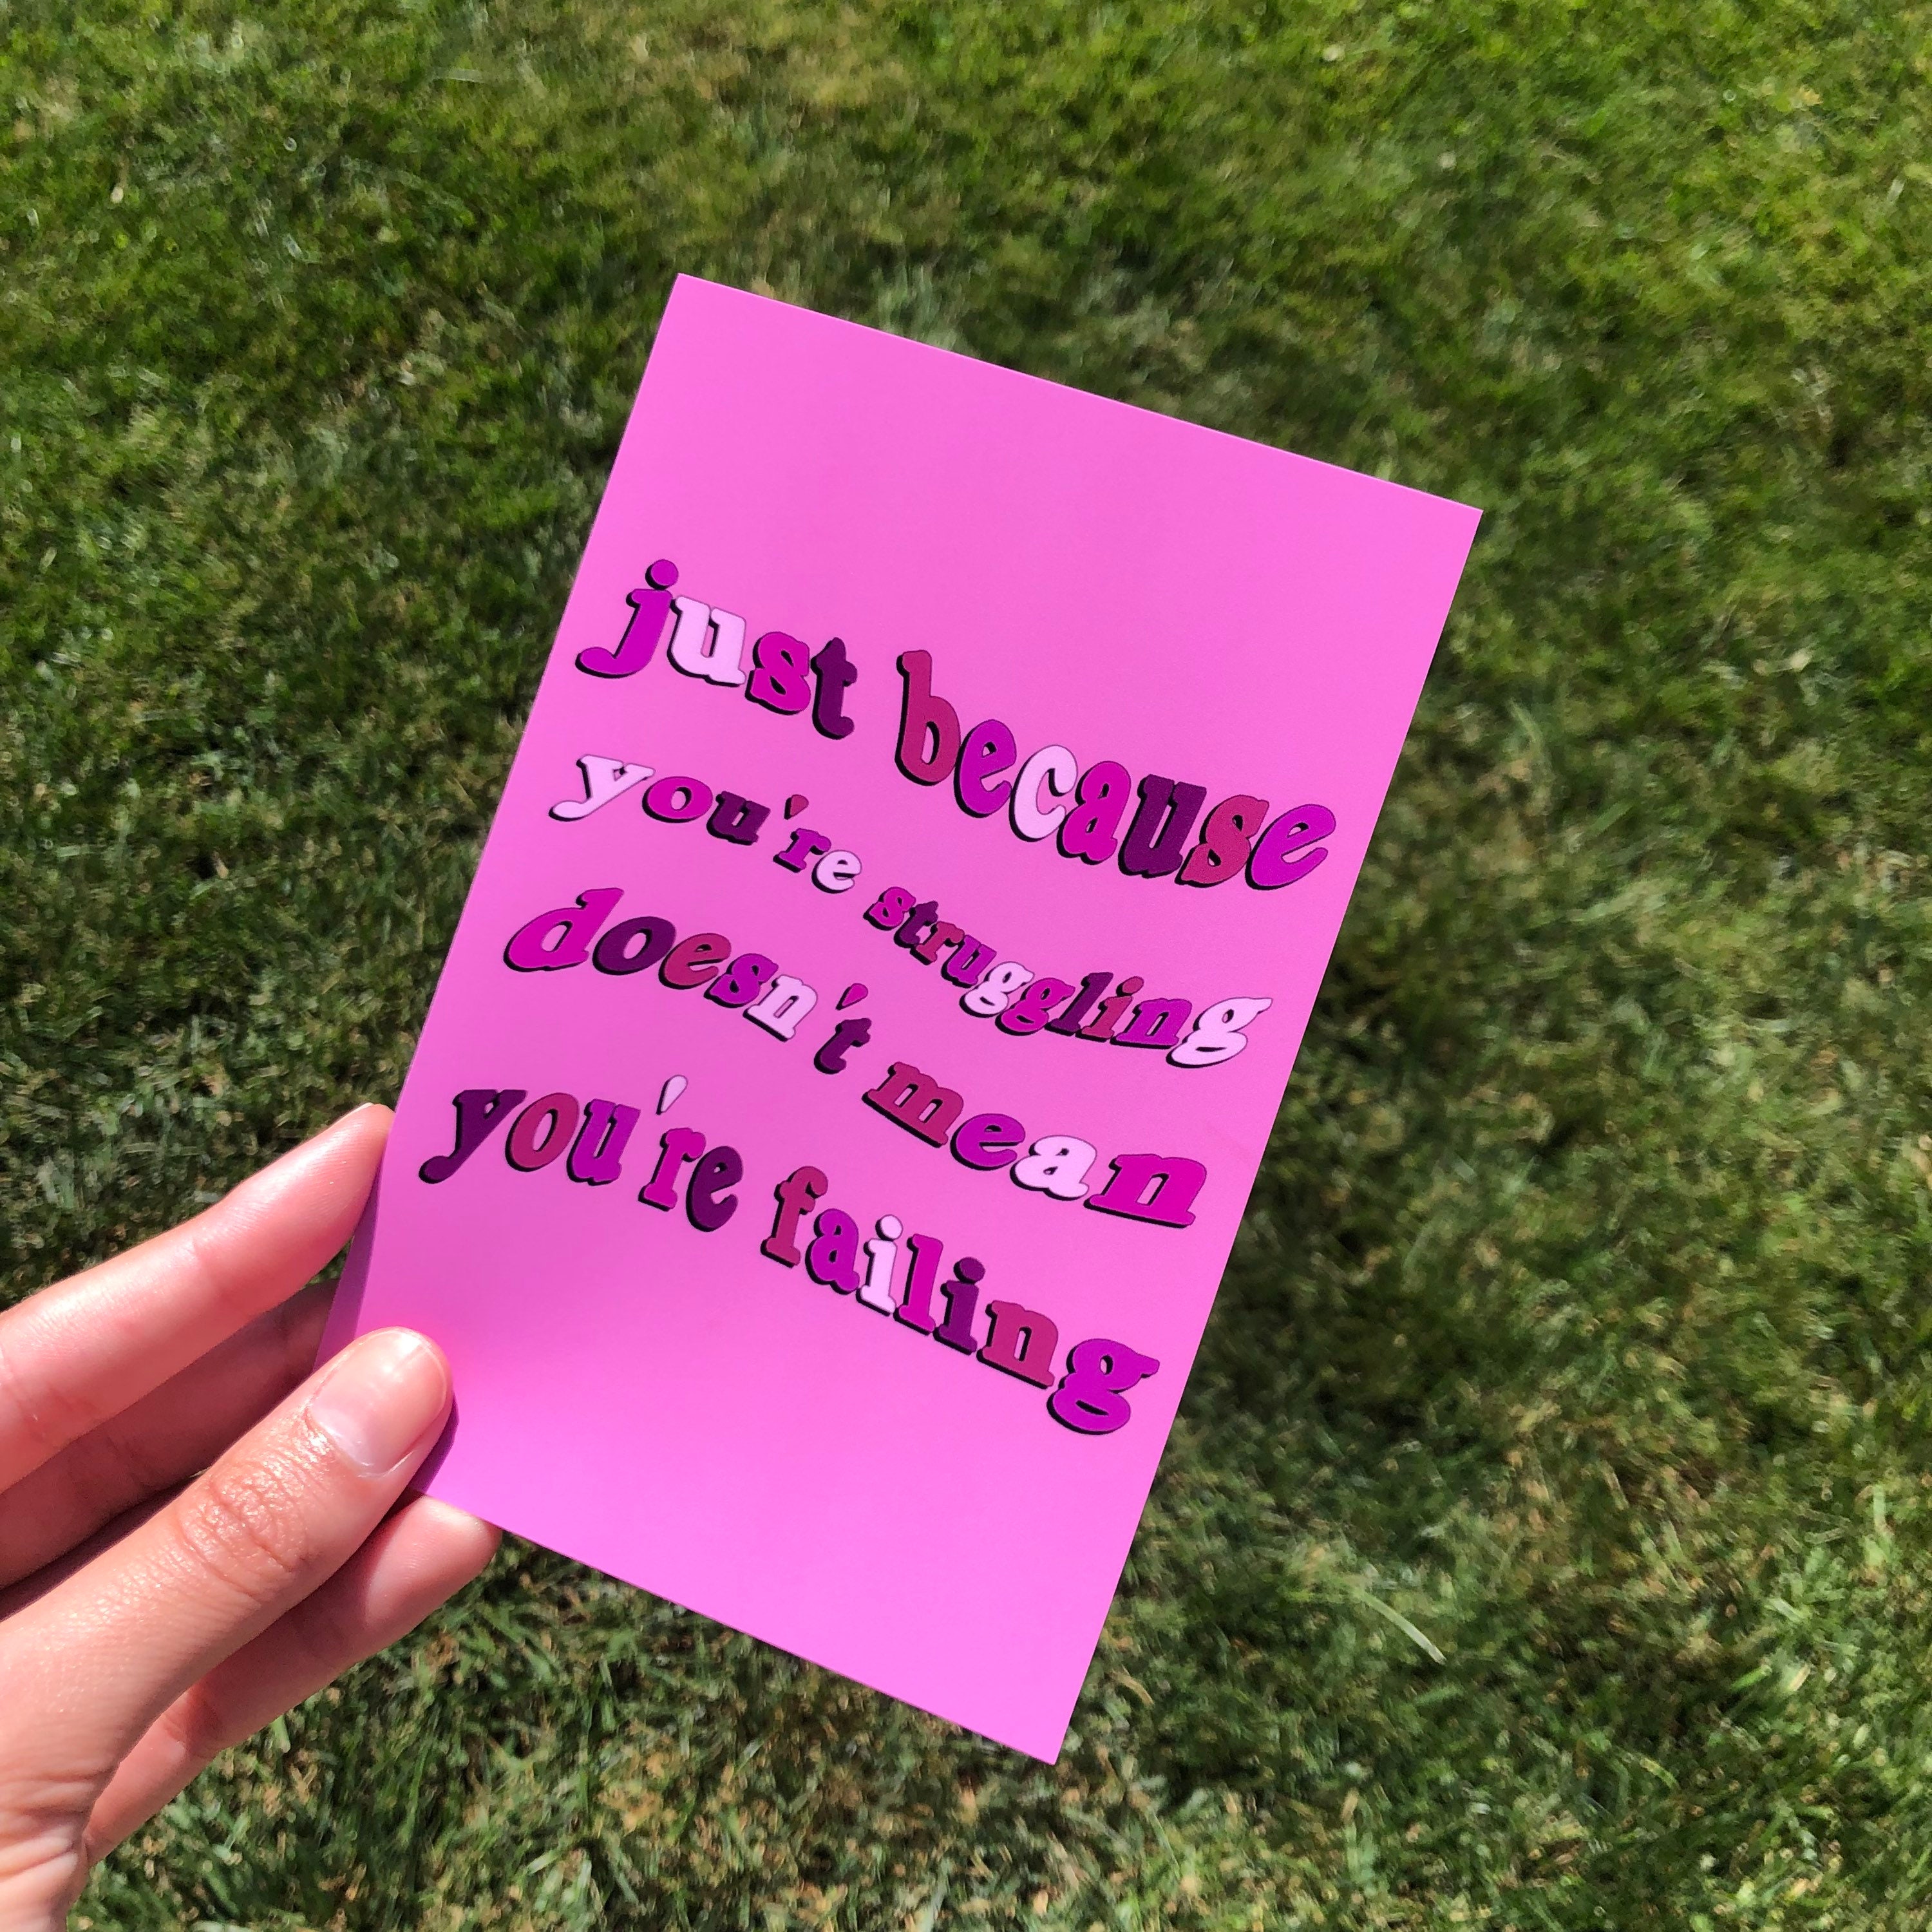 just because
you're struggling
doesn't mean
you're failing